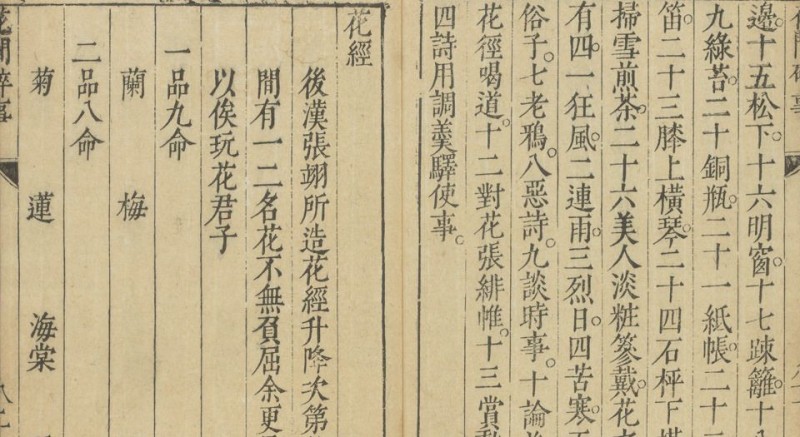 邊。十五松下。十六明窗。十七疎籬。十八
九綠苔。二十銅瓶。二十一紙帳。二十二
笛。二十三膝上橫琴。二十四石枰下
掃雪煎茶。二十六美人淡粧篸戴。花
有四。一狂風。二連雨。三烈日。四苦寒。
俗子。七老鴉。八惡詩。九談時事。十論
花徑喝道。十二對花張緋帷。十三賞
四詩用調羹驛使事。
花經
後漢張翊所造花經升降次第
間有一二名花不無負屈余更
以俟玩花君子
一品九命
蘭 梅
二品八命
菊 蓮 海棠
花間碎事